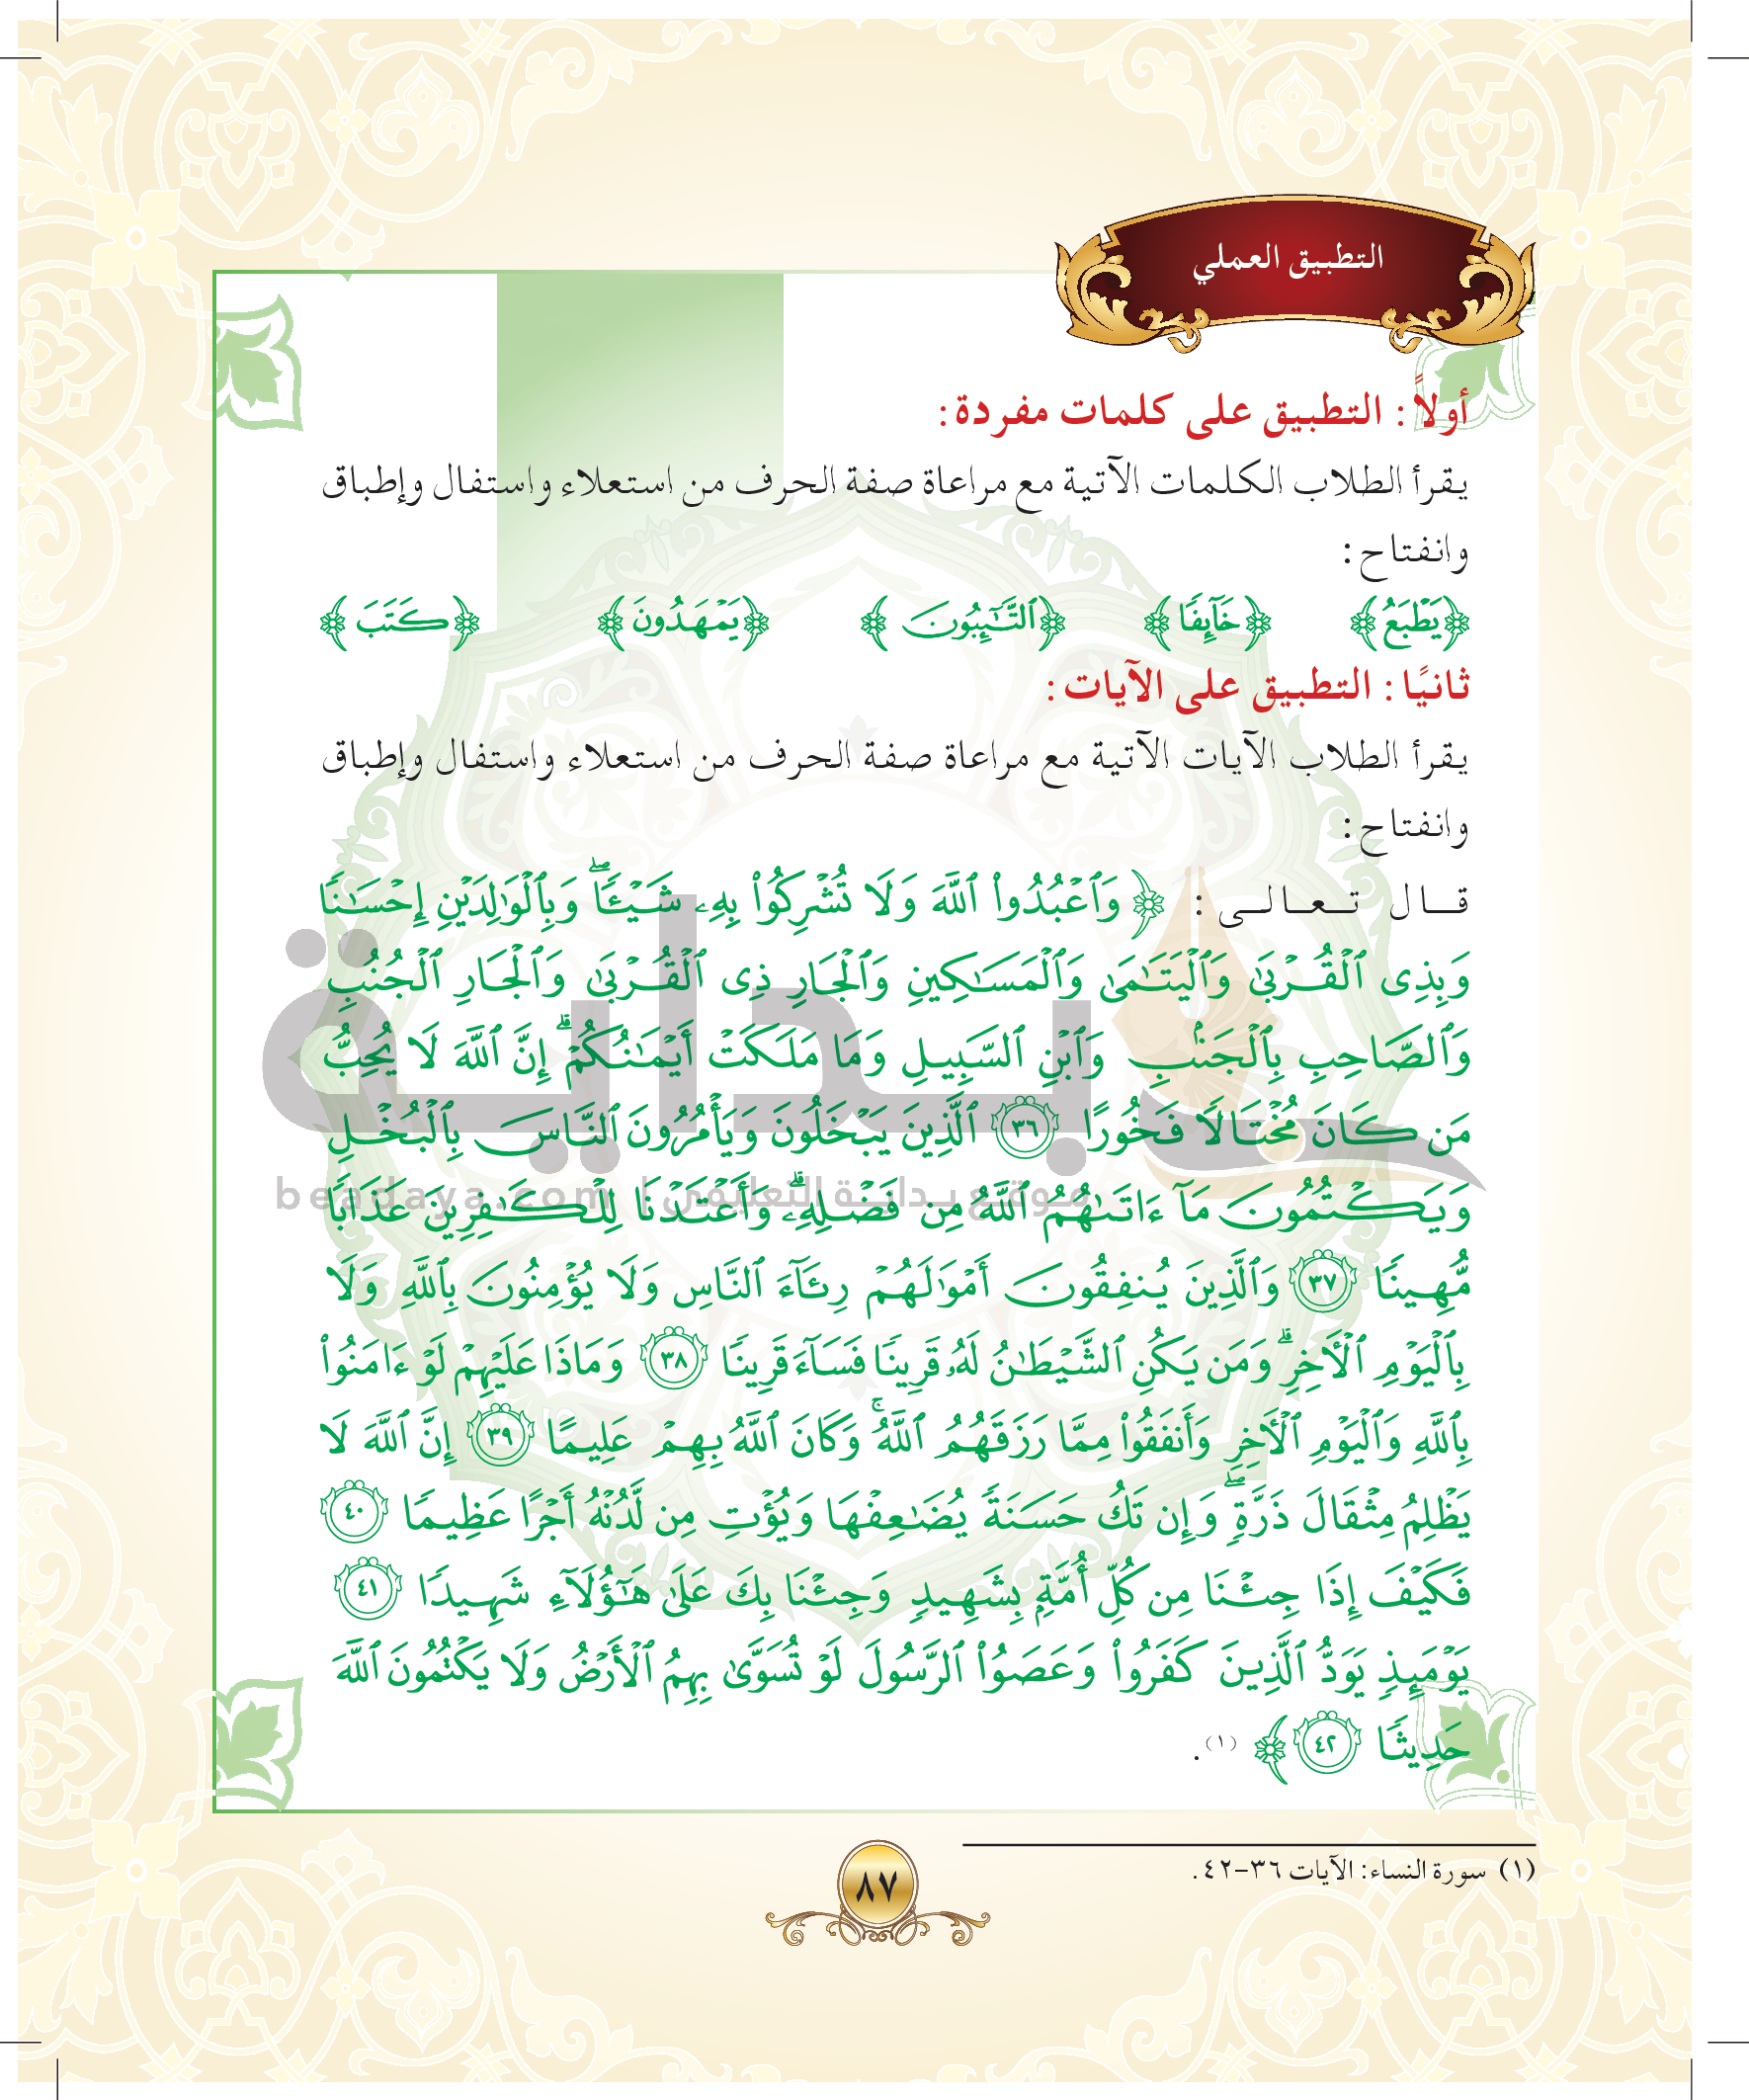 التطبيق العملي
أولاً: التطبيق على كلمات مفردة:
يقرأ الطلاب الكلمات الآتية مع مراعاة صفة الحرف من استعلاء واستفال وإطباق
وانفتاح:
﴿يَطْبَعُ﴾ ﴿خَآئِفًا﴾ ﴿ٱلتَّٰٓئِبُونَ﴾ ﴿يَمْهَدُونَ﴾ ﴿كَتَبَ﴾
ثانيًا: التطبيق على الآيات:
يقرأ الطلاب الآيات الآتية مع مراعاة صفة الحرف من استعلاء واستفال وإطباق
وانفتاح:
قال تعالى: ﴿وَٱعْبُدُوا۟ ٱللَّهَ وَلَا تُشْرِكُوا۟ بِهِۦ شَيْـًٔا ۖ وَبِٱلْوَٰلِدَيْنِ إِحْسَٰنًا
وَبِذِى ٱلْقُرْبَىٰ وَٱلْيَتَٰمَىٰ وَٱلْمَسَٰكِينِ وَٱلْجَارِ ذِى ٱلْقُرْبَىٰ وَٱلْجَارِ ٱلْجُنُبِ
وَٱلصَّاحِبِ بِٱلْجَنۢبِ وَٱبْنِ ٱلسَّبِيلِ وَمَا مَلَكَتْ أَيْمَٰنُكُمْ ۗ إِنَّ ٱللَّهَ لَا يُحِبُّ
مَن كَانَ مُخْتَالًا فَخُورًا ٣٦ ٱلَّذِينَ يَبْخَلُونَ وَيَأْمُرُونَ ٱلنَّاسَ بِٱلْبُخْلِ
وَيَكْتُمُونَ مَآ ءَاتَىٰهُمُ ٱللَّهُ مِن فَضْلِهِۦ ۗ وَأَعْتَدْنَا لِلْكَٰفِرِينَ عَذَابًا
مُّهِينًا ٣٧ وَٱلَّذِينَ يُنفِقُونَ أَمْوَٰلَهُمْ رِئَآءَ ٱلنَّاسِ وَلَا يُؤْمِنُونَ بِٱللَّهِ وَلَا
بِٱلْيَوْمِ ٱلْـَٔاخِرِ ۗ وَمَن يَكُنِ ٱلشَّيْطَٰنُ لَهُۥ قَرِينًا فَسَآءَ قَرِينًا ٣٨ وَمَاذَا عَلَيْهِمْ لَوْ ءَامَنُوا۟
بِٱللَّهِ وَٱلْيَوْمِ ٱلْـَٔاخِرِ وَأَنفَقُوا۟ مِمَّا رَزَقَهُمُ ٱللَّهُ ۚ وَكَانَ ٱللَّهُ بِهِمْ عَلِيمًا ٣٩ إِنَّ ٱللَّهَ لَا
يَظْلِمُ مِثْقَالَ ذَرَّةٍ ۖ وَإِن تَكُ حَسَنَةً يُضَٰعِفْهَا وَيُؤْتِ مِن لَّدُنْهُ أَجْرًا عَظِيمًا ٤٠
فَكَيْفَ إِذَا جِئْنَا مِن كُلِّ أُمَّةٍۭ بِشَهِيدٍ وَجِئْنَا بِكَ عَلَىٰ هَٰٓؤُلَآءِ شَهِيدًا ٤١
يَوْمَئِذٍ يَوَدُّ ٱلَّذِينَ كَفَرُوا۟ وَعَصَوُا۟ ٱلرَّسُولَ لَوْ تُسَوَّىٰ بِهِمُ ٱلْأَرْضُ وَلَا يَكْتُمُونَ ٱللَّهَ
حَدِيثًا ٤٢﴾ (١).
بداية
موقع بداية التعليمي | beadaya.com
(١) سورة النساء: الآيات ٣٦-٤٢.
٨٧